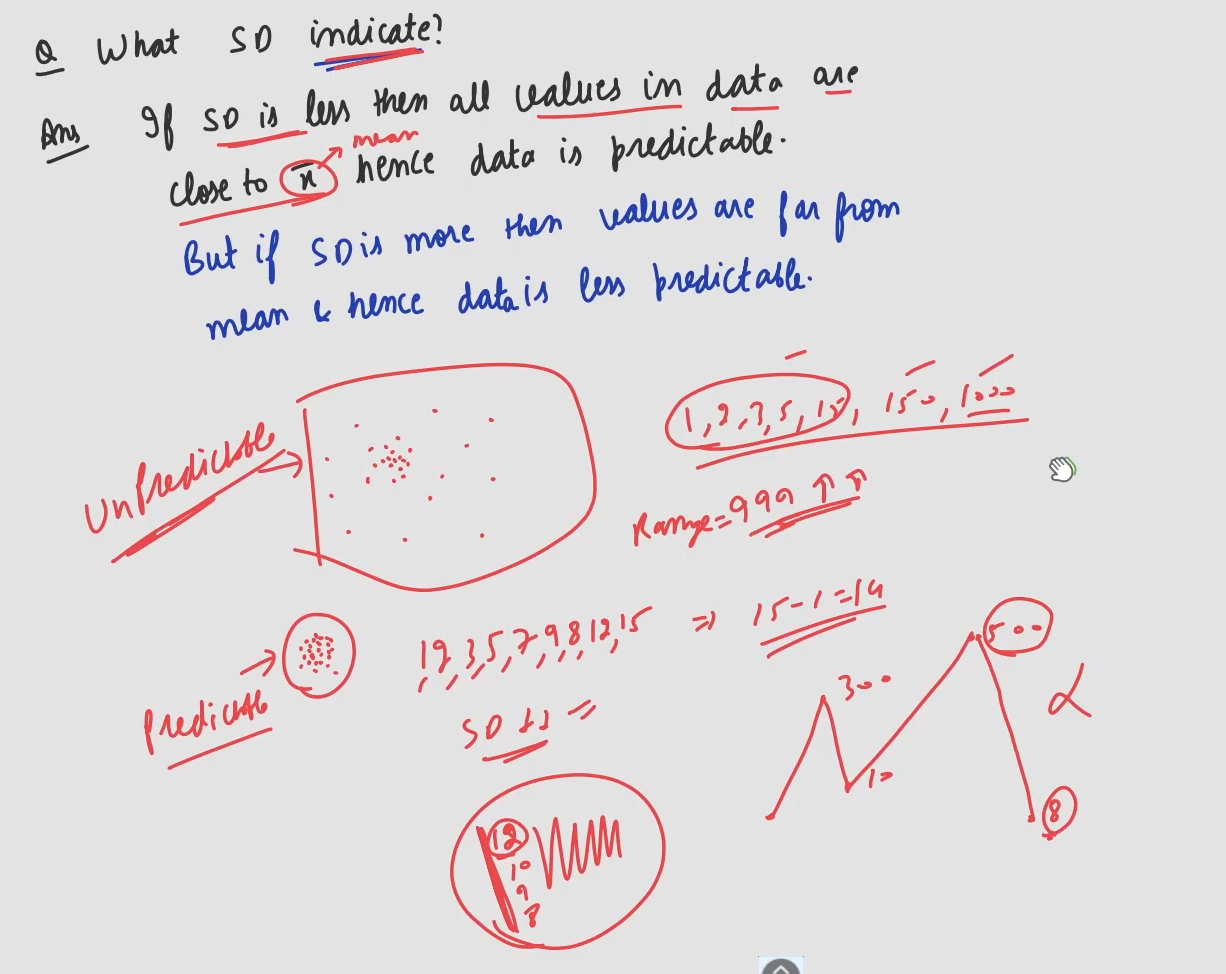 Q What SD indicate?
Ans If SD is less then all values in data are
mean
close to x̄ hence data is predictable.
But if SD is more then values are far from
mean & hence data is less predictable.
UnPredictable
1, 2, 3, 5, 15, 150, 1000
Range = 999 ↑ ↑
Predictable
3, 5, 7, 9, 8, 12, 15 ⇒ 15-1=14
SD ↓↓ =
300
500
10
8
12
10
9
8